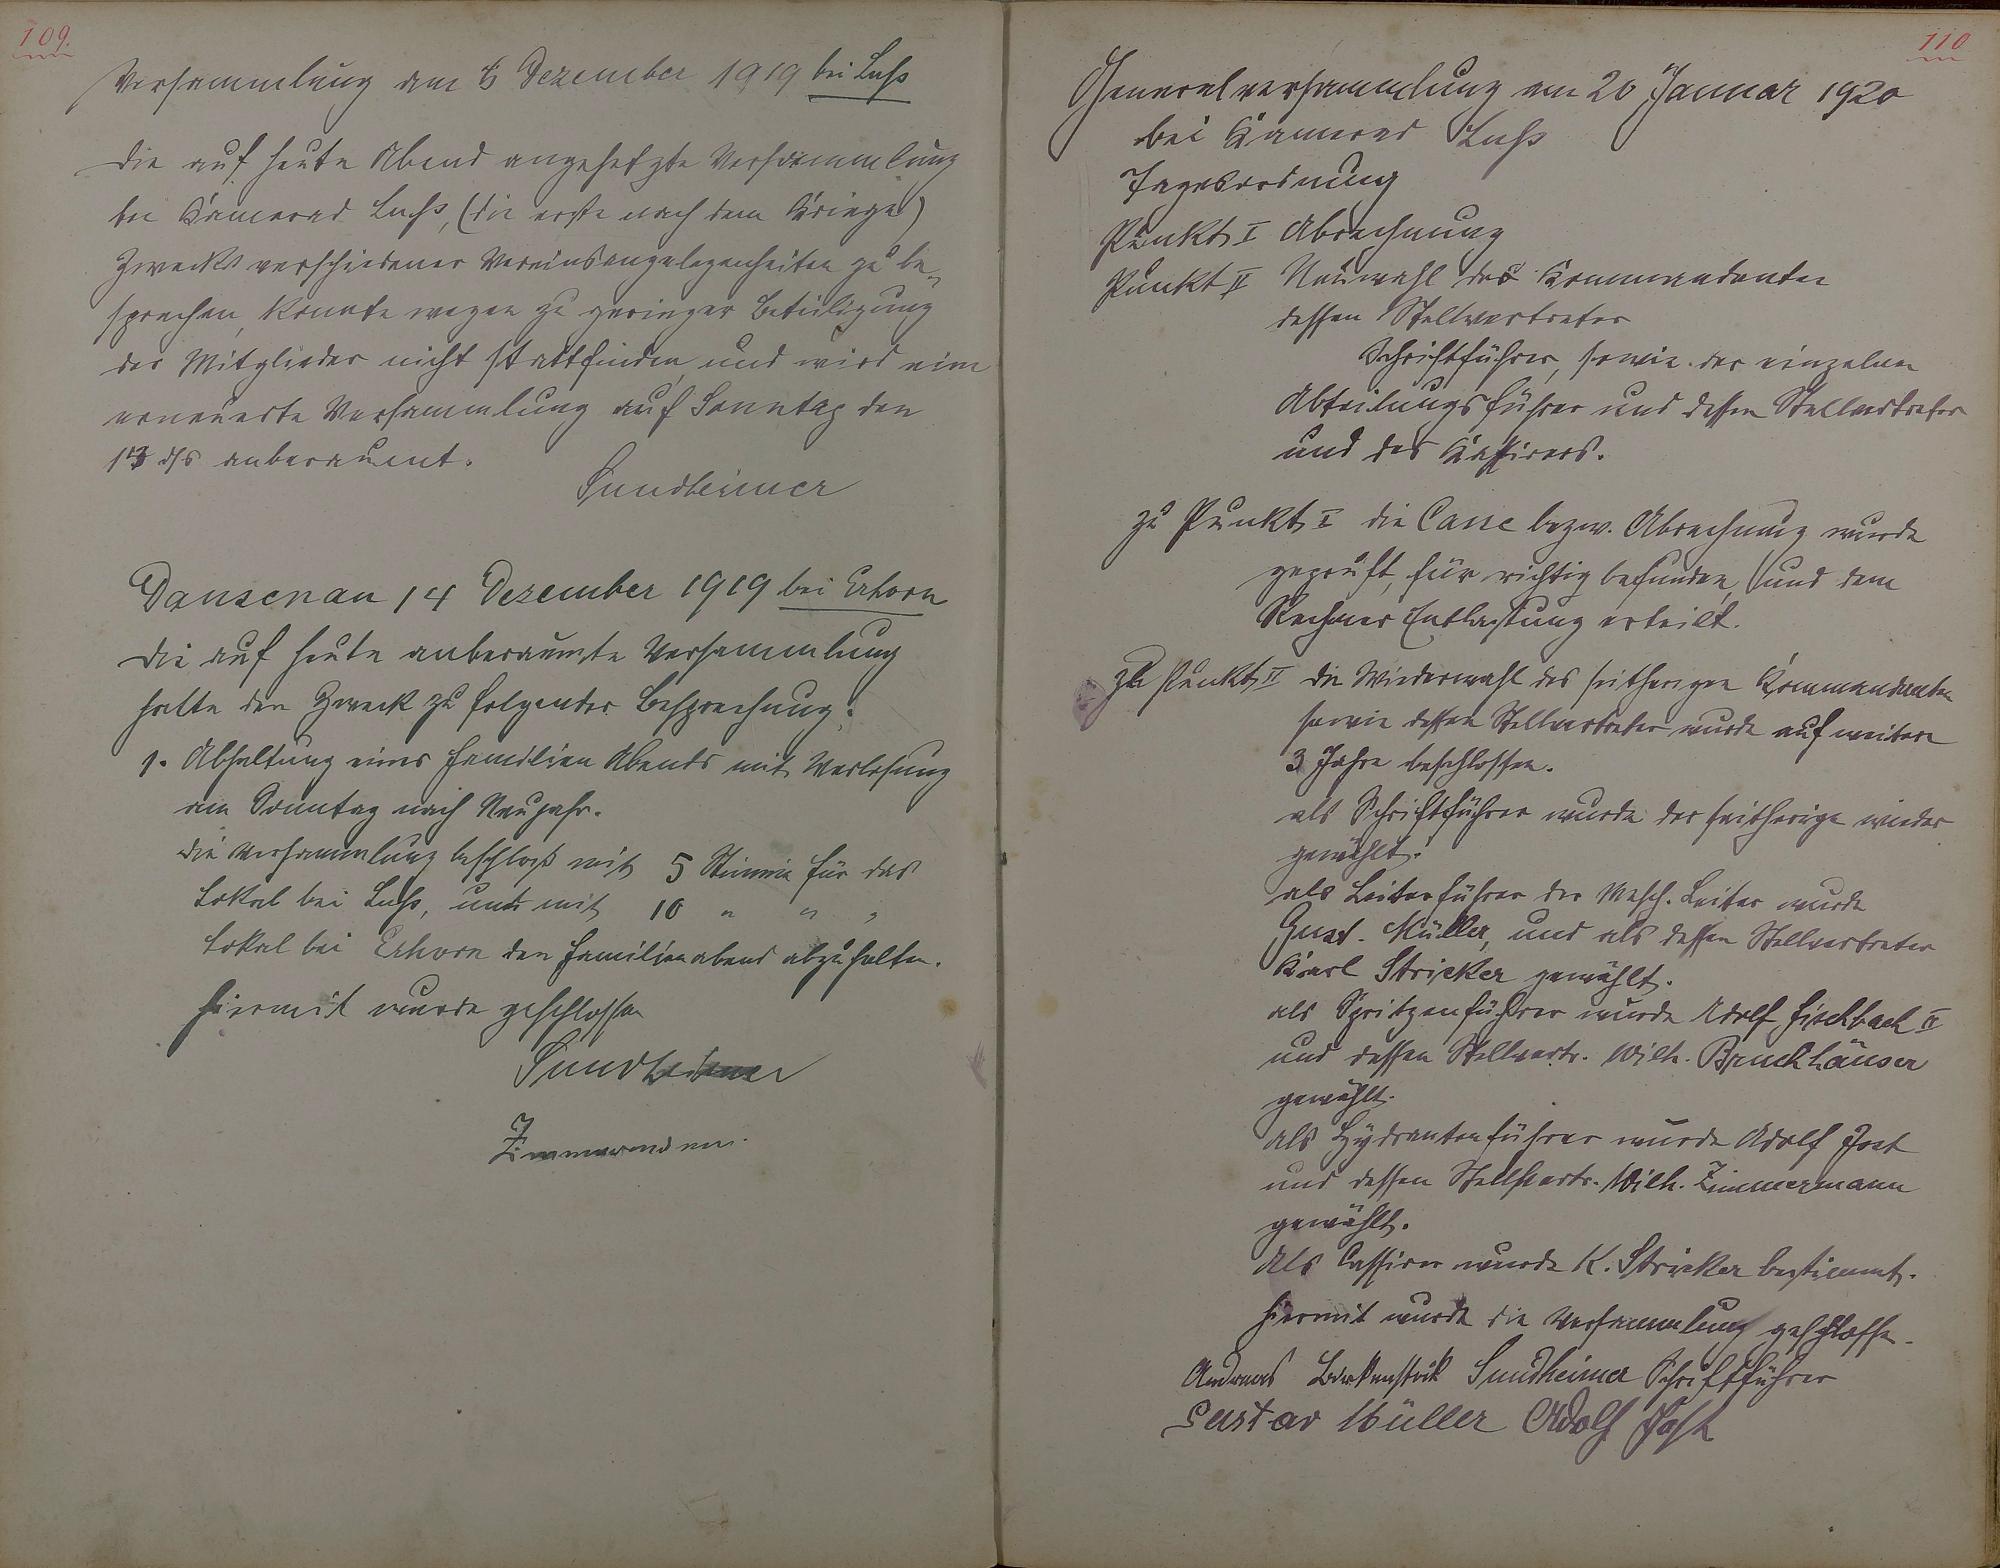 109.
Versammlung am 6 Dezember 1919 bei Luhs
Die auf heute Abend angesetzte Versammlung
bei Kamerad Luhs, (die erste nach dem Kriege)
Zwecks verschiedener Vereinsangelegenheiten zu be-
sprechen, konnte wegen zu geringer Beteiligung
der Mitglieder nicht stattfinden und wird eine
erneuerte Versammlung auf Sonntag den
ds anberaumt.
Sundheimer
Dausenau 14 Dezember 1919 bei Erhorn
Die auf heute anberaumte Versammlung
hatte den Zweck zu folgender Besprechung.
1. Abhaltung eines Familien Abends mit Verlosung
am Sonntag nach Neujahr.
die Versammlung beschloß mit 5 Stimmen für das
Lokal bei Luhs, und mit 10 " " "
Lokal bei Erhorn den Familienabend abzuhalten.
Hiermit wurde geschlossen
Sundheimer
Zimmermann.
110
Generalversammlung am 20 Januar 1920
bei Kamerad Luhs
Tagesordnung
Punkt I Abrechnung
Punkt II Neuwahl des Kommandanten
dessen Stellvertreter
Schriftführer, sowie der einzelnen
Abteilungsführer und dessen Stellvertreter
und des Kassirers.
zu Punkt I die Casse bezw. Abrechnung wurde
geprüft, für richtig befunden, und dem
Rechner Entlastung erteilt.
zu Punkt II die Wiederwahl des seitherigen Kommandanten
sowie dessen Stellvertreter wurde auf weitere
3 Jahre beschlossen.
als Schriftführer wurde der seitherige wieder
gewählt.
als Leiterführer der Mech. Leiter wurde
Gust. Müller, und als dessen Stellvertreter
Karl Stricker gewählt.
als Spritzenführer wurde Adolf Fischbach II
und dessen Stellvertr. Wilh. Bruchhäuser
gewählt.
als Hydrantenführer wurde Adolf Jost
und dessen Stellvertr. Wilh. Zimmermann
gewählt.
Als Cassirer wurde K. Stricker bestimmt.
Hiermit wurde die Versammlung geschlossen.
Andreas Birkenstock Sundheimer Schriftführer
Gustav Müller Adolf Jost